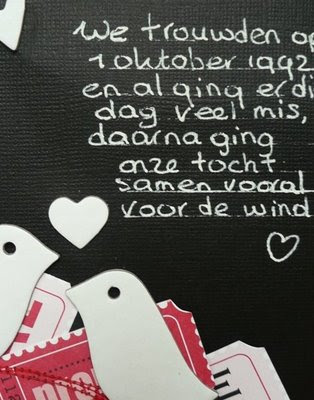 We trouwden op
1 oktober 1992
en al ging er di
dag veel mis,
daarna ging
onze tocht
samen vooral
voor de wind